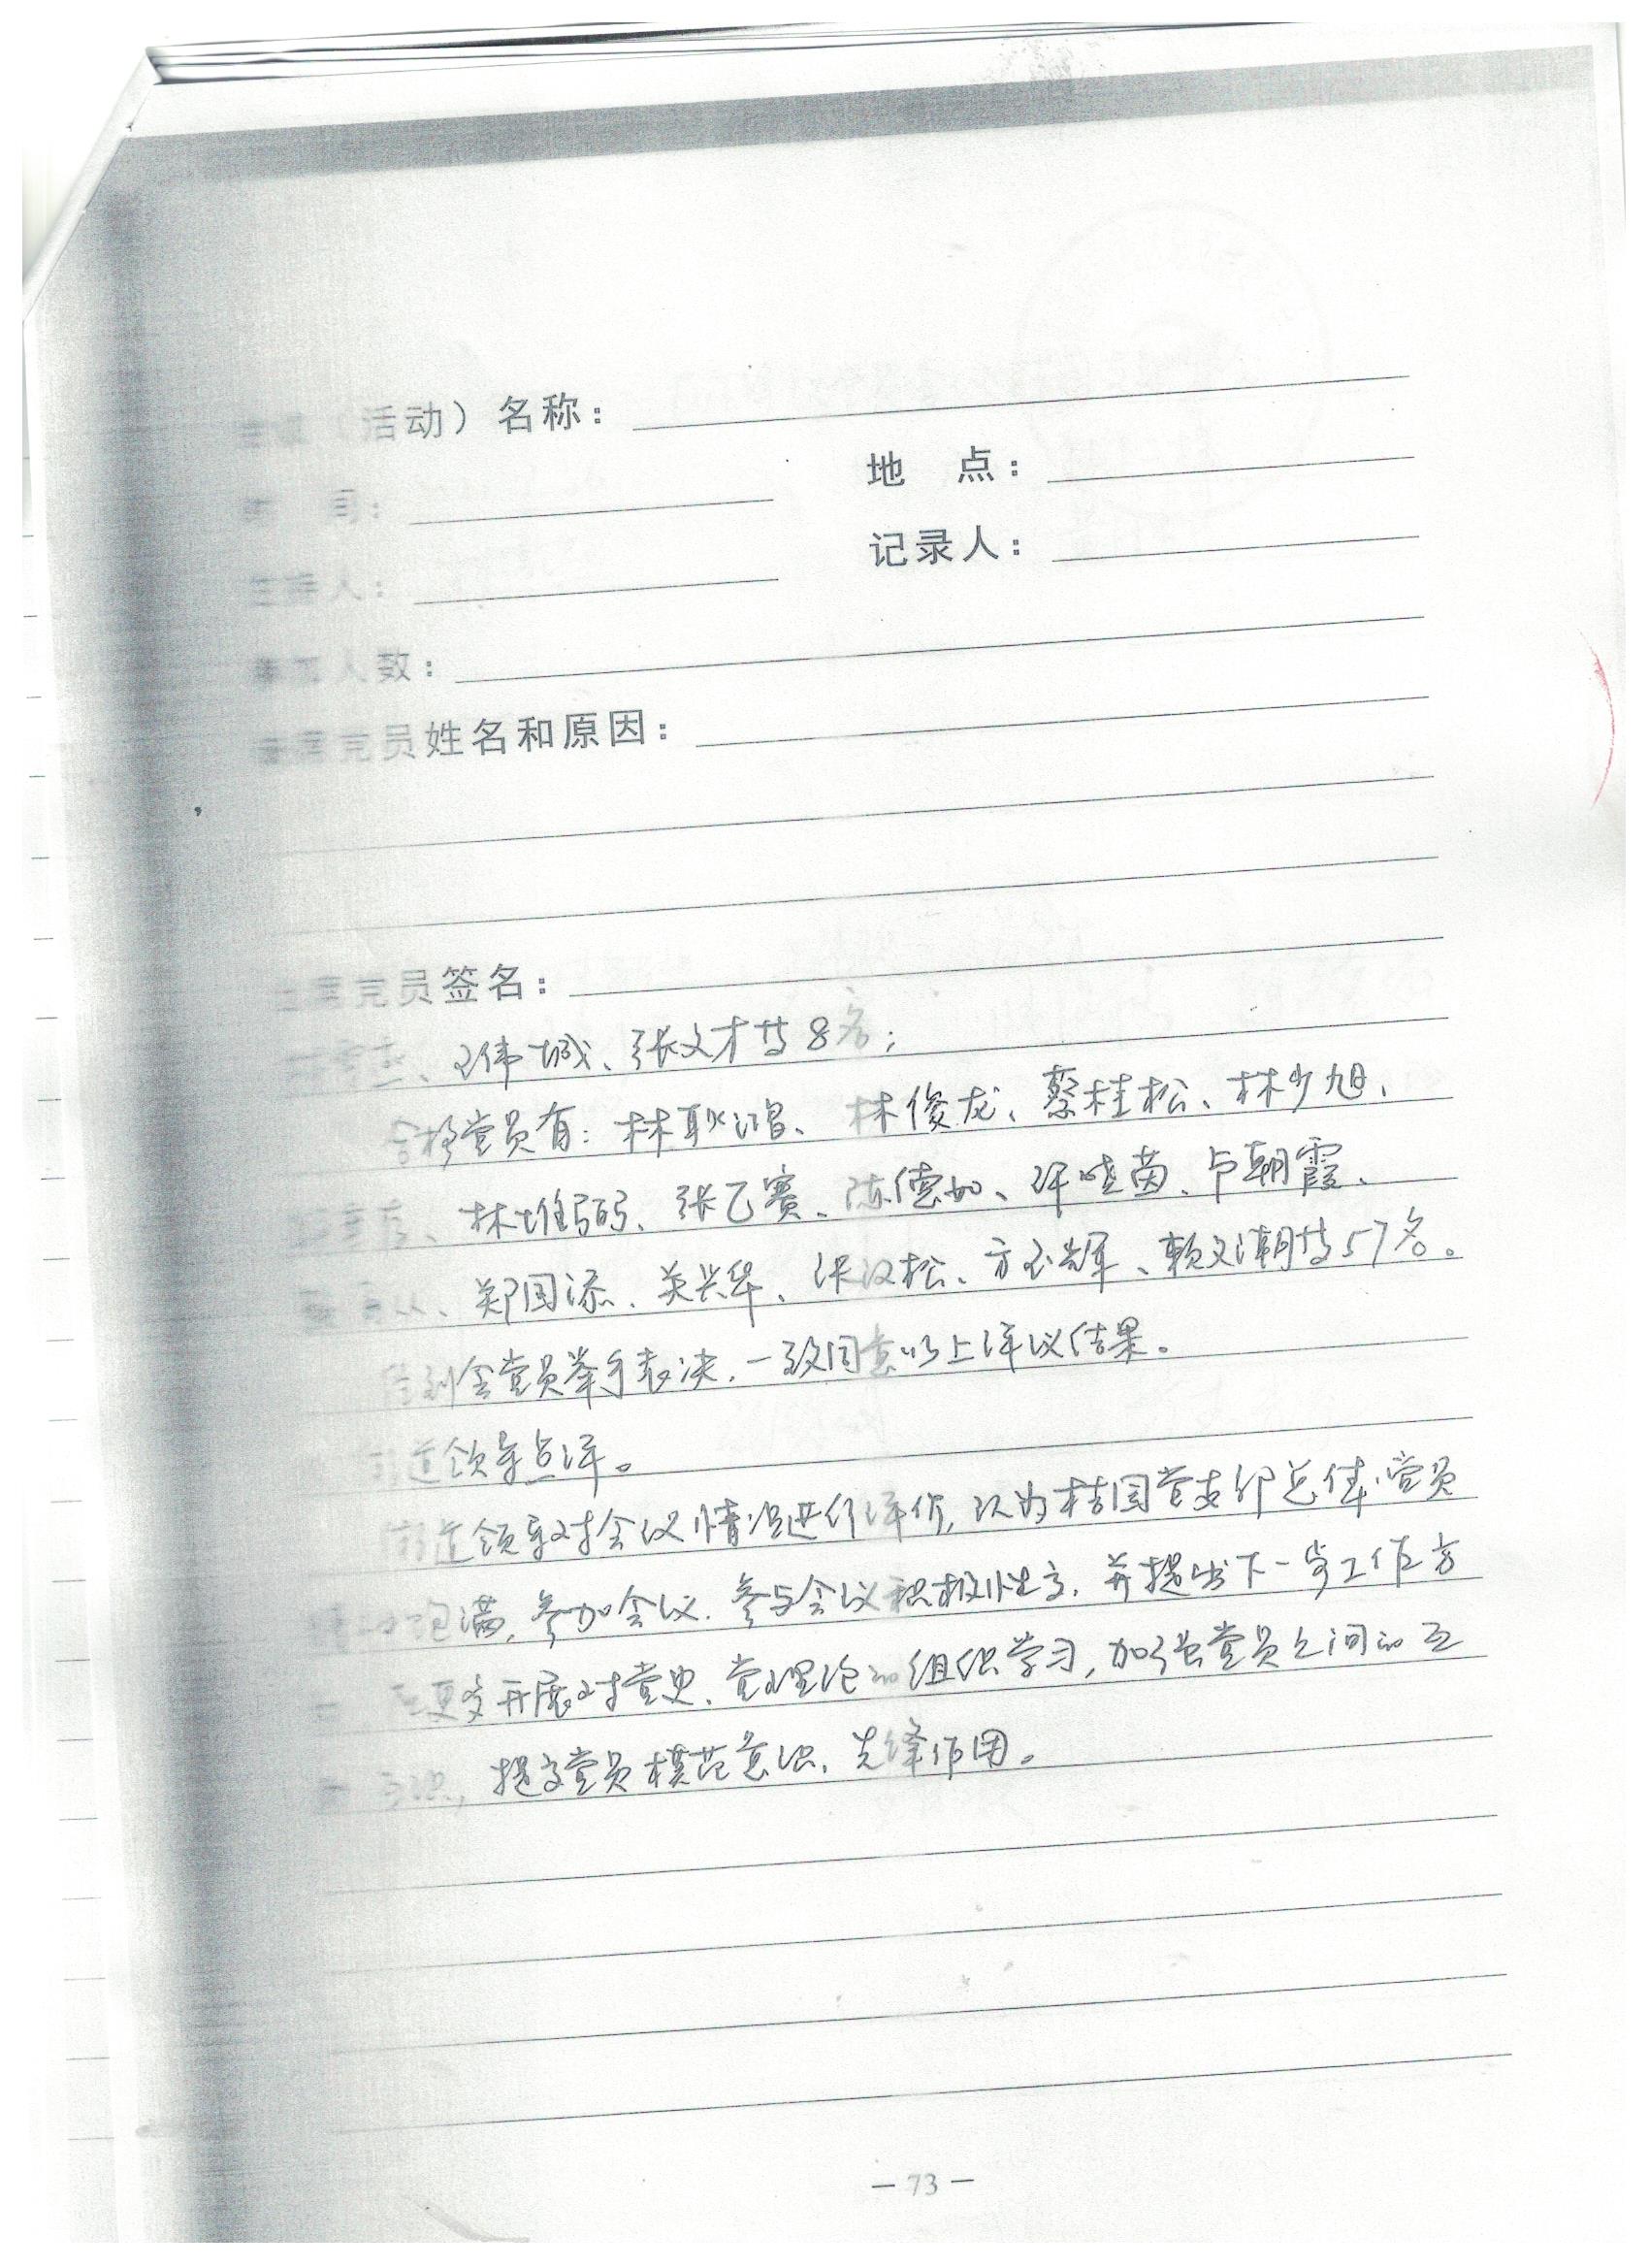 （活动）名称：
地 点：
间：
记录人：
主持人：
人数：
缺席党员姓名和原因：
出席党员签名：
伟城、张文才等8名；
合格党员有：林耿鸿、林俊龙、蔡桂松、林少旭、
林雄弱、张乙赛、陈德如、许晓茵、卢朝霞、
郑国添、吴兴华、张汉松、方玉辉、赖文潮等57名。
到会党员举手表决，一致同意以上评议结果。
街道领导点评。
街道领导对会议情况进行评价，认为桔园党支部总体党员
饱满，参加会议、参与会议积极性高，并提出下一步工作方
更多开展对党史、党理论的组织学习，加强党员之间的互
提高党员模范意识、先锋作用。
— 73 —